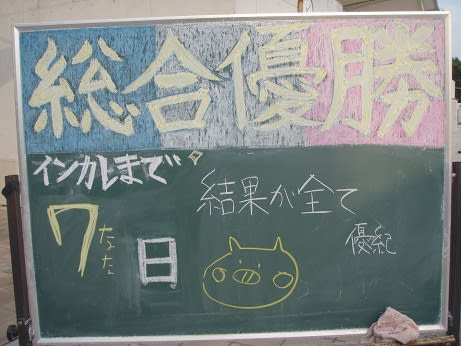 総合優勝
インカレまで
7日
なな
結果が全て
優紀